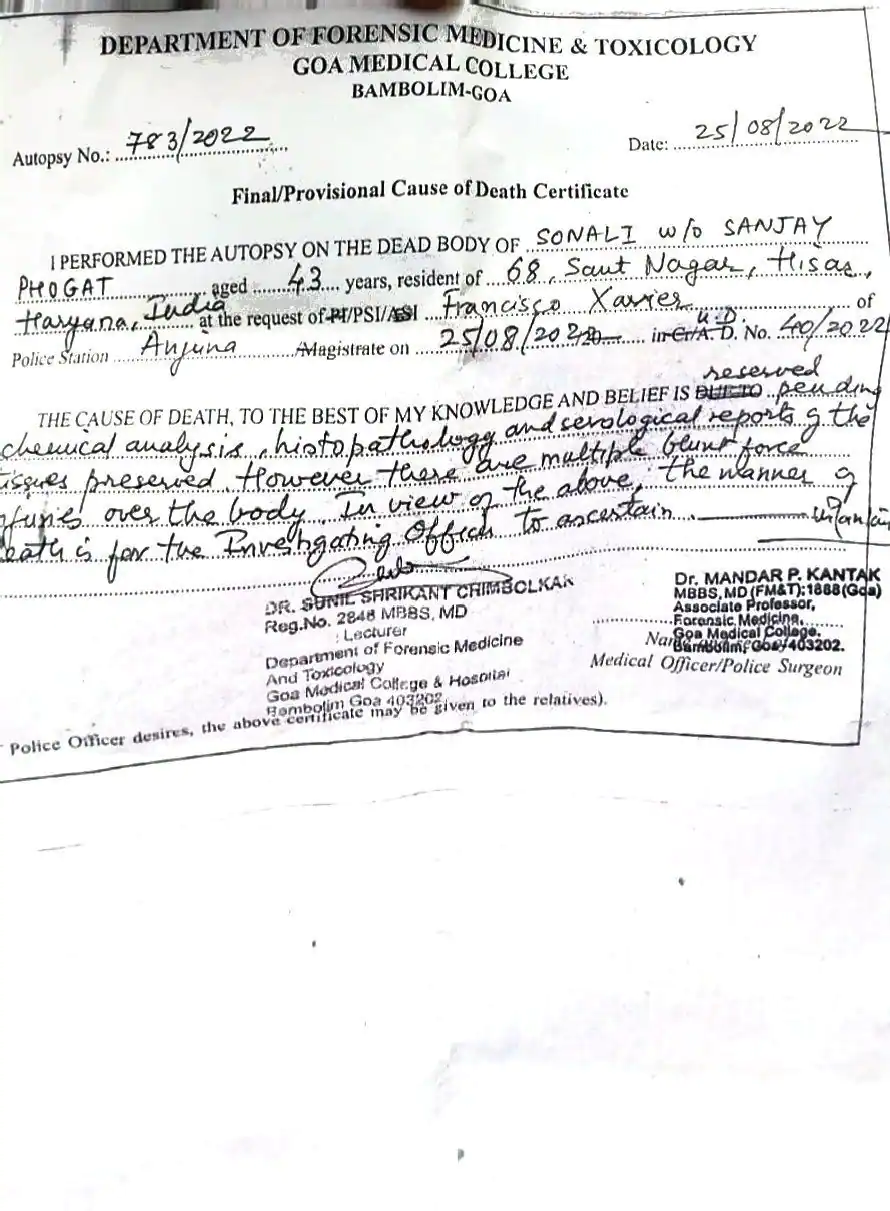 DEPARTMENT OF FORENSIC MEDICINE & TOXICOLOGY
GOA MEDICAL COLLEGE
BAMBOLIM-GOA
Autopsy No.: 783/2022
Date: 25/08/2022
Final/Provisional Cause of Death Certificate
I PERFORMED THE AUTOPSY ON THE DEAD BODY OF SONALI W/O SANJAY
PHOGAT aged 43 years, resident of 68, Sant Nagar, Hisar,
Haryana, India at the request of PI/PSI/ASI Francisco Xavier of
Police Station Anjuna /Magistrate on 25/08/2022 in Cr/A.D. No. 40/2022
U.D.
reserved
THE CAUSE OF DEATH, TO THE BEST OF MY KNOWLEDGE AND BELIEF IS DUE TO pending
chemical analysis, histopathology and serological reports of the
tissues preserved. However there are multiple blunt force
over the body. In view of the above, the manner of
death is for the Investigating Officer to ascertain
DR. SUNIL SHRIKANT CHIMBOLKAR
Reg.No. 2848 MBBS, MD
Lecturer
Department of Forensic Medicine
And Toxicology
Goa Medical College & Hospital
Bambolim Goa 403202
Dr. MANDAR P. KANTAK
MBBS, MD (FM&T):1888(Goa)
Associate Professor,
Forensic Medicine,
Goa Medical College,
Bambolim, Goa/403202.
Medical Officer/Police Surgeon
Police Officer desires, the above certificate may be given to the relatives).